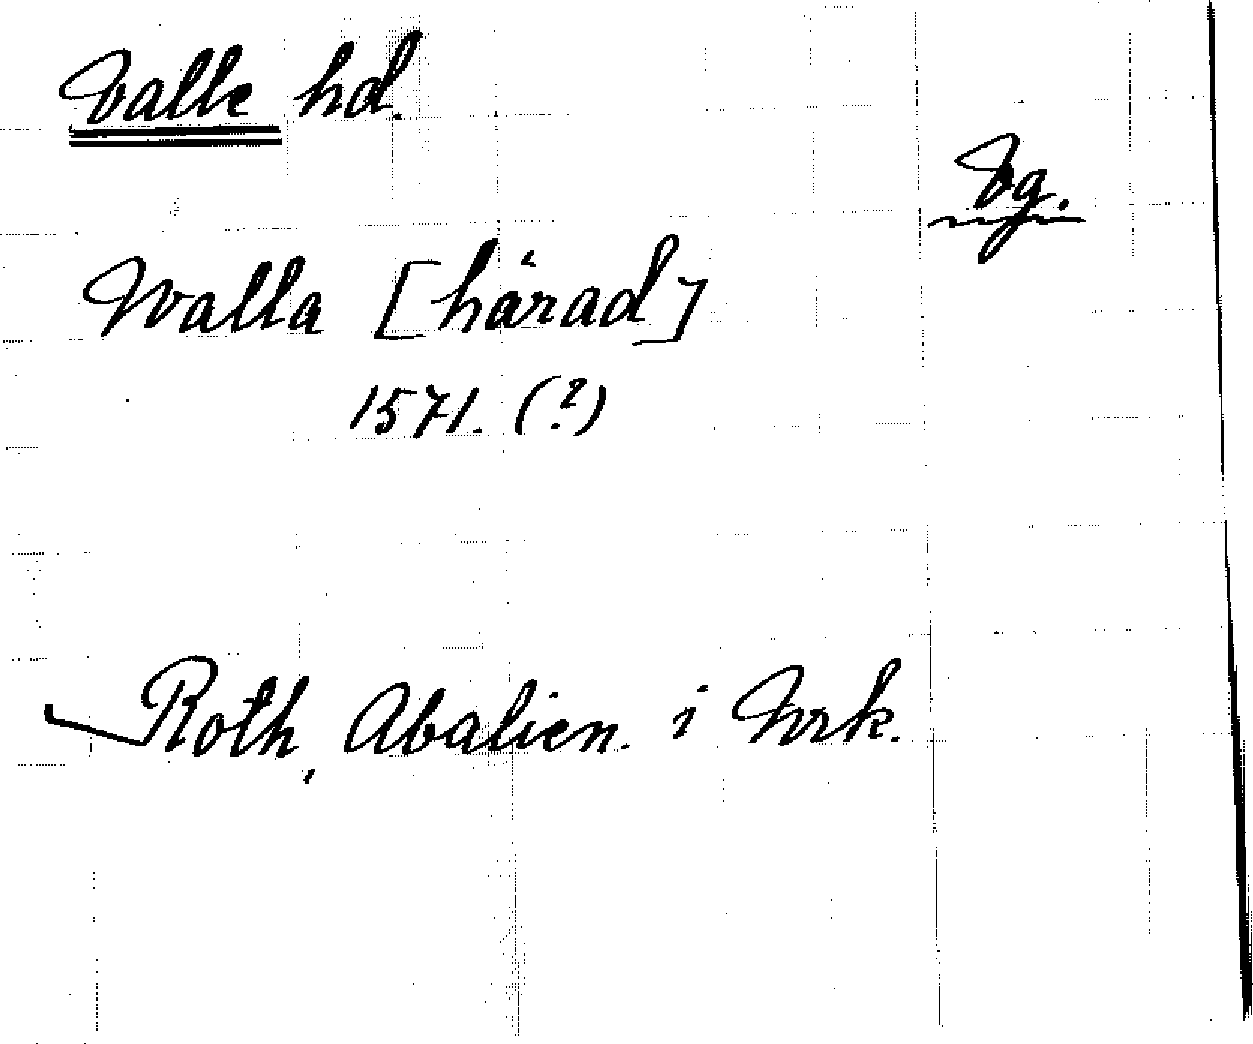 Valle hd.
Vg.
Walla [härad]
1571. (?)
Roth, Abalien. i Nrk.